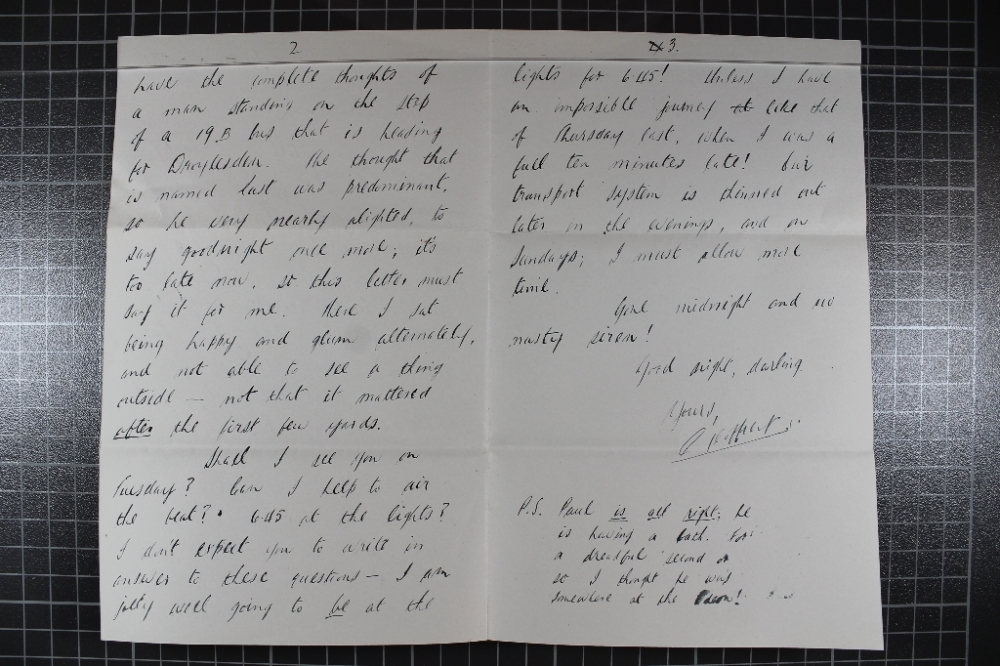 2
have the complete thoughts of
a man standing on the step
of a 19.B bus that is heading
for Droylesden. The thought that
is named last was predominant,
so he very nearly alighted, to
say goodnight once more; it's
too late now, so this letter must
say it for me. There I sat
being happy and glum alternately,
and not able to see a thing
outside — not that it mattered
after the first few yards.
Shall I see you on
Tuesday? Can I help to air
the beat? 6.45 at the lights?
I don't expect you to write in
answer to these questions — I am
jolly well going to be at the
3.
lights for 6.45! Unless I have
an impossible journey like that
of Thursday last, when I was a
full ten minutes late! Our
transport system is thinned out
later in the evenings, and on
Sundays; I must allow more
time.
Gone midnight and no
nasty siren!
Good night, darling.
Yours,
P.S. Paul is all right; he
is having a bath. For
a dreadful second or
so I thought he was
somewhere at the